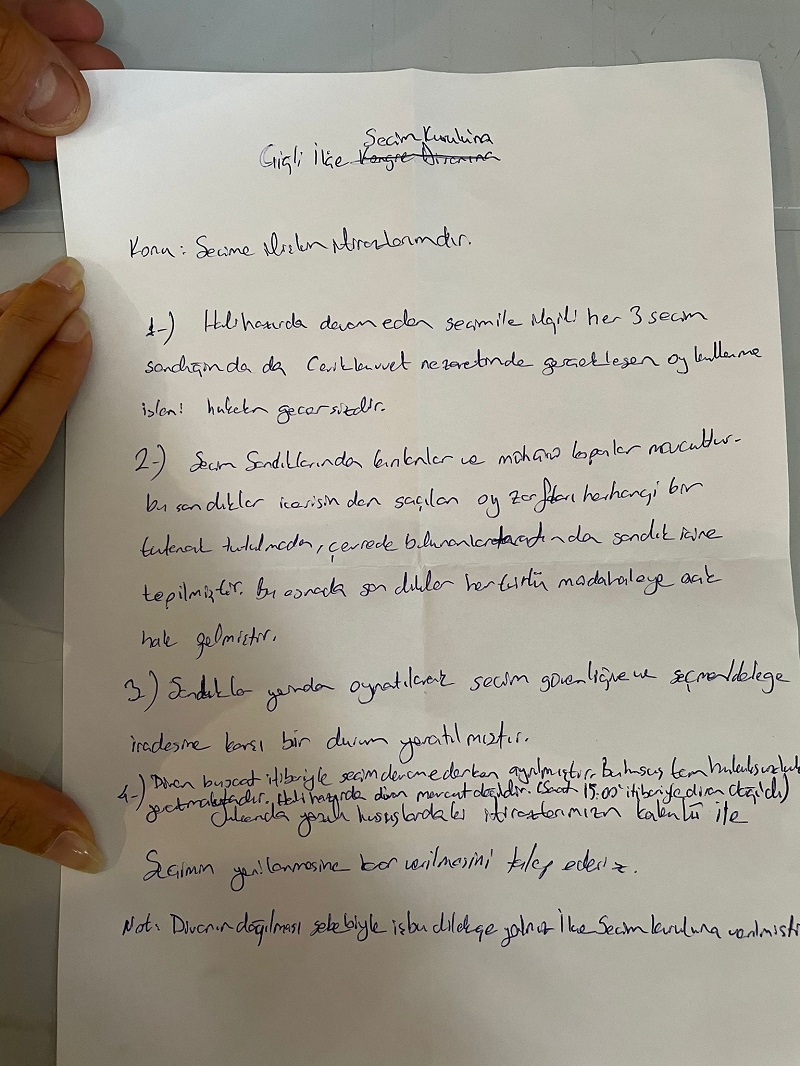 Seçim Kuruluna
Çiğli İlçe Kongre Divanına
Konu: Seçime ilişkin itirazlarımdır.
1-) Halihazırda devam eden seçim ile ilgili her 3 seçim
sandığında da Cevik kuvvet nezaretinde gerçekleşen oy kullanma
işlemi hukuken geçersizdir.
2-) Seçim Sandıklarında kırıklar ve mührü kopanlar mevcuttur.
bu sandıklar içerisinden saçılan oy zarfları herhangi bir
tutanak tutulmadan, çevrede bulunanlar tarafından sandık içine
tepilmiştir. Bu esnada sandıklar her türlü müdahaleye açık
hale gelmiştir.
3-) Sandıklar yerinden oynatılarak seçim güvenliğine ve seçmen/delege
iradesine karşı bir durum yaratılmıştır.
4-) Divan bu saat itibariyle seçim devam ederken ayrılmıştır. Bu husus tam hukuksuzluk
yaratmaktadır. Halihazırda divan mevcut değildir. (Saat 15.00 itibariyle divan dağıldı)
Yukarıda yazılı hususlardaki itirazlarımızın kabulü ile
Seçimin yenilenmesine karar verilmesini talep ederiz.
Not: Divanın dağılması sebebiyle işbu dilekçe yalnız İlçe Seçim kuruluna verilmişti